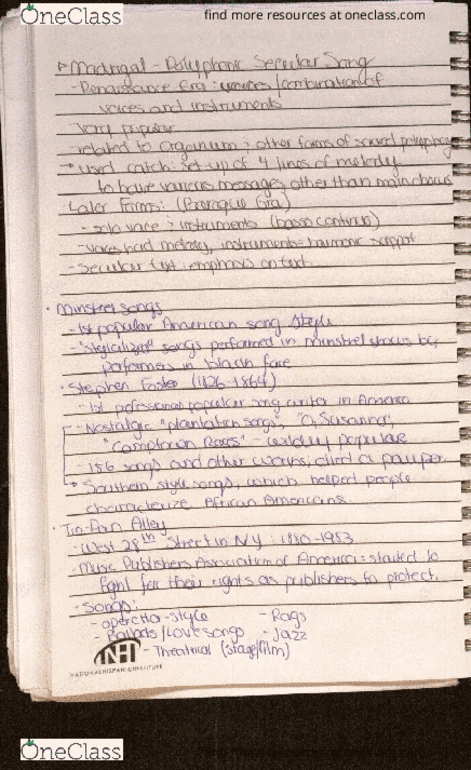 OneClass
find more resources at oneclass.com
Madrigal - Polyphonic Secular Song
- Renaissance Era: voices/combination of
voices and instruments
- very popular
- related to Organum ; other forms of sacred polyphony
* used catch: set-up of 4 lines of melody
to have various messages other than main chorus
Later Forms: (Baroque Era)
- solo voice ; instruments (basso continuo)
- voices had melody, instruments = harmonic support
- Secular text: emphasis on text
· Minstrel songs
- 1st popular American song style
- "stylized" songs performed in minstrel shows by
performers in black face
· Stephen Foster (1826-1864)
- 1st professional popular song writer in America
- Nostalgic "plantation songs", "O, Susanna",
"Camptown Races" - wildly popular
- 156 songs and other works; died a pauper
* Southern style songs, which helped people
characterize African Americans
· Tin-Pan Alley
- West 28th Street in NY: 1880-1953
- Music Publishers Association of America: started to
fight for their rights as publishers to protect.
- Songs:
- operetta-style - Rags
- Ballads/Love songs - Jazz
- Theatrical (stage/film)
NHI
NATIONAL HISPANIC INSTITUTE
OneClass
find more resources at oneclass.com